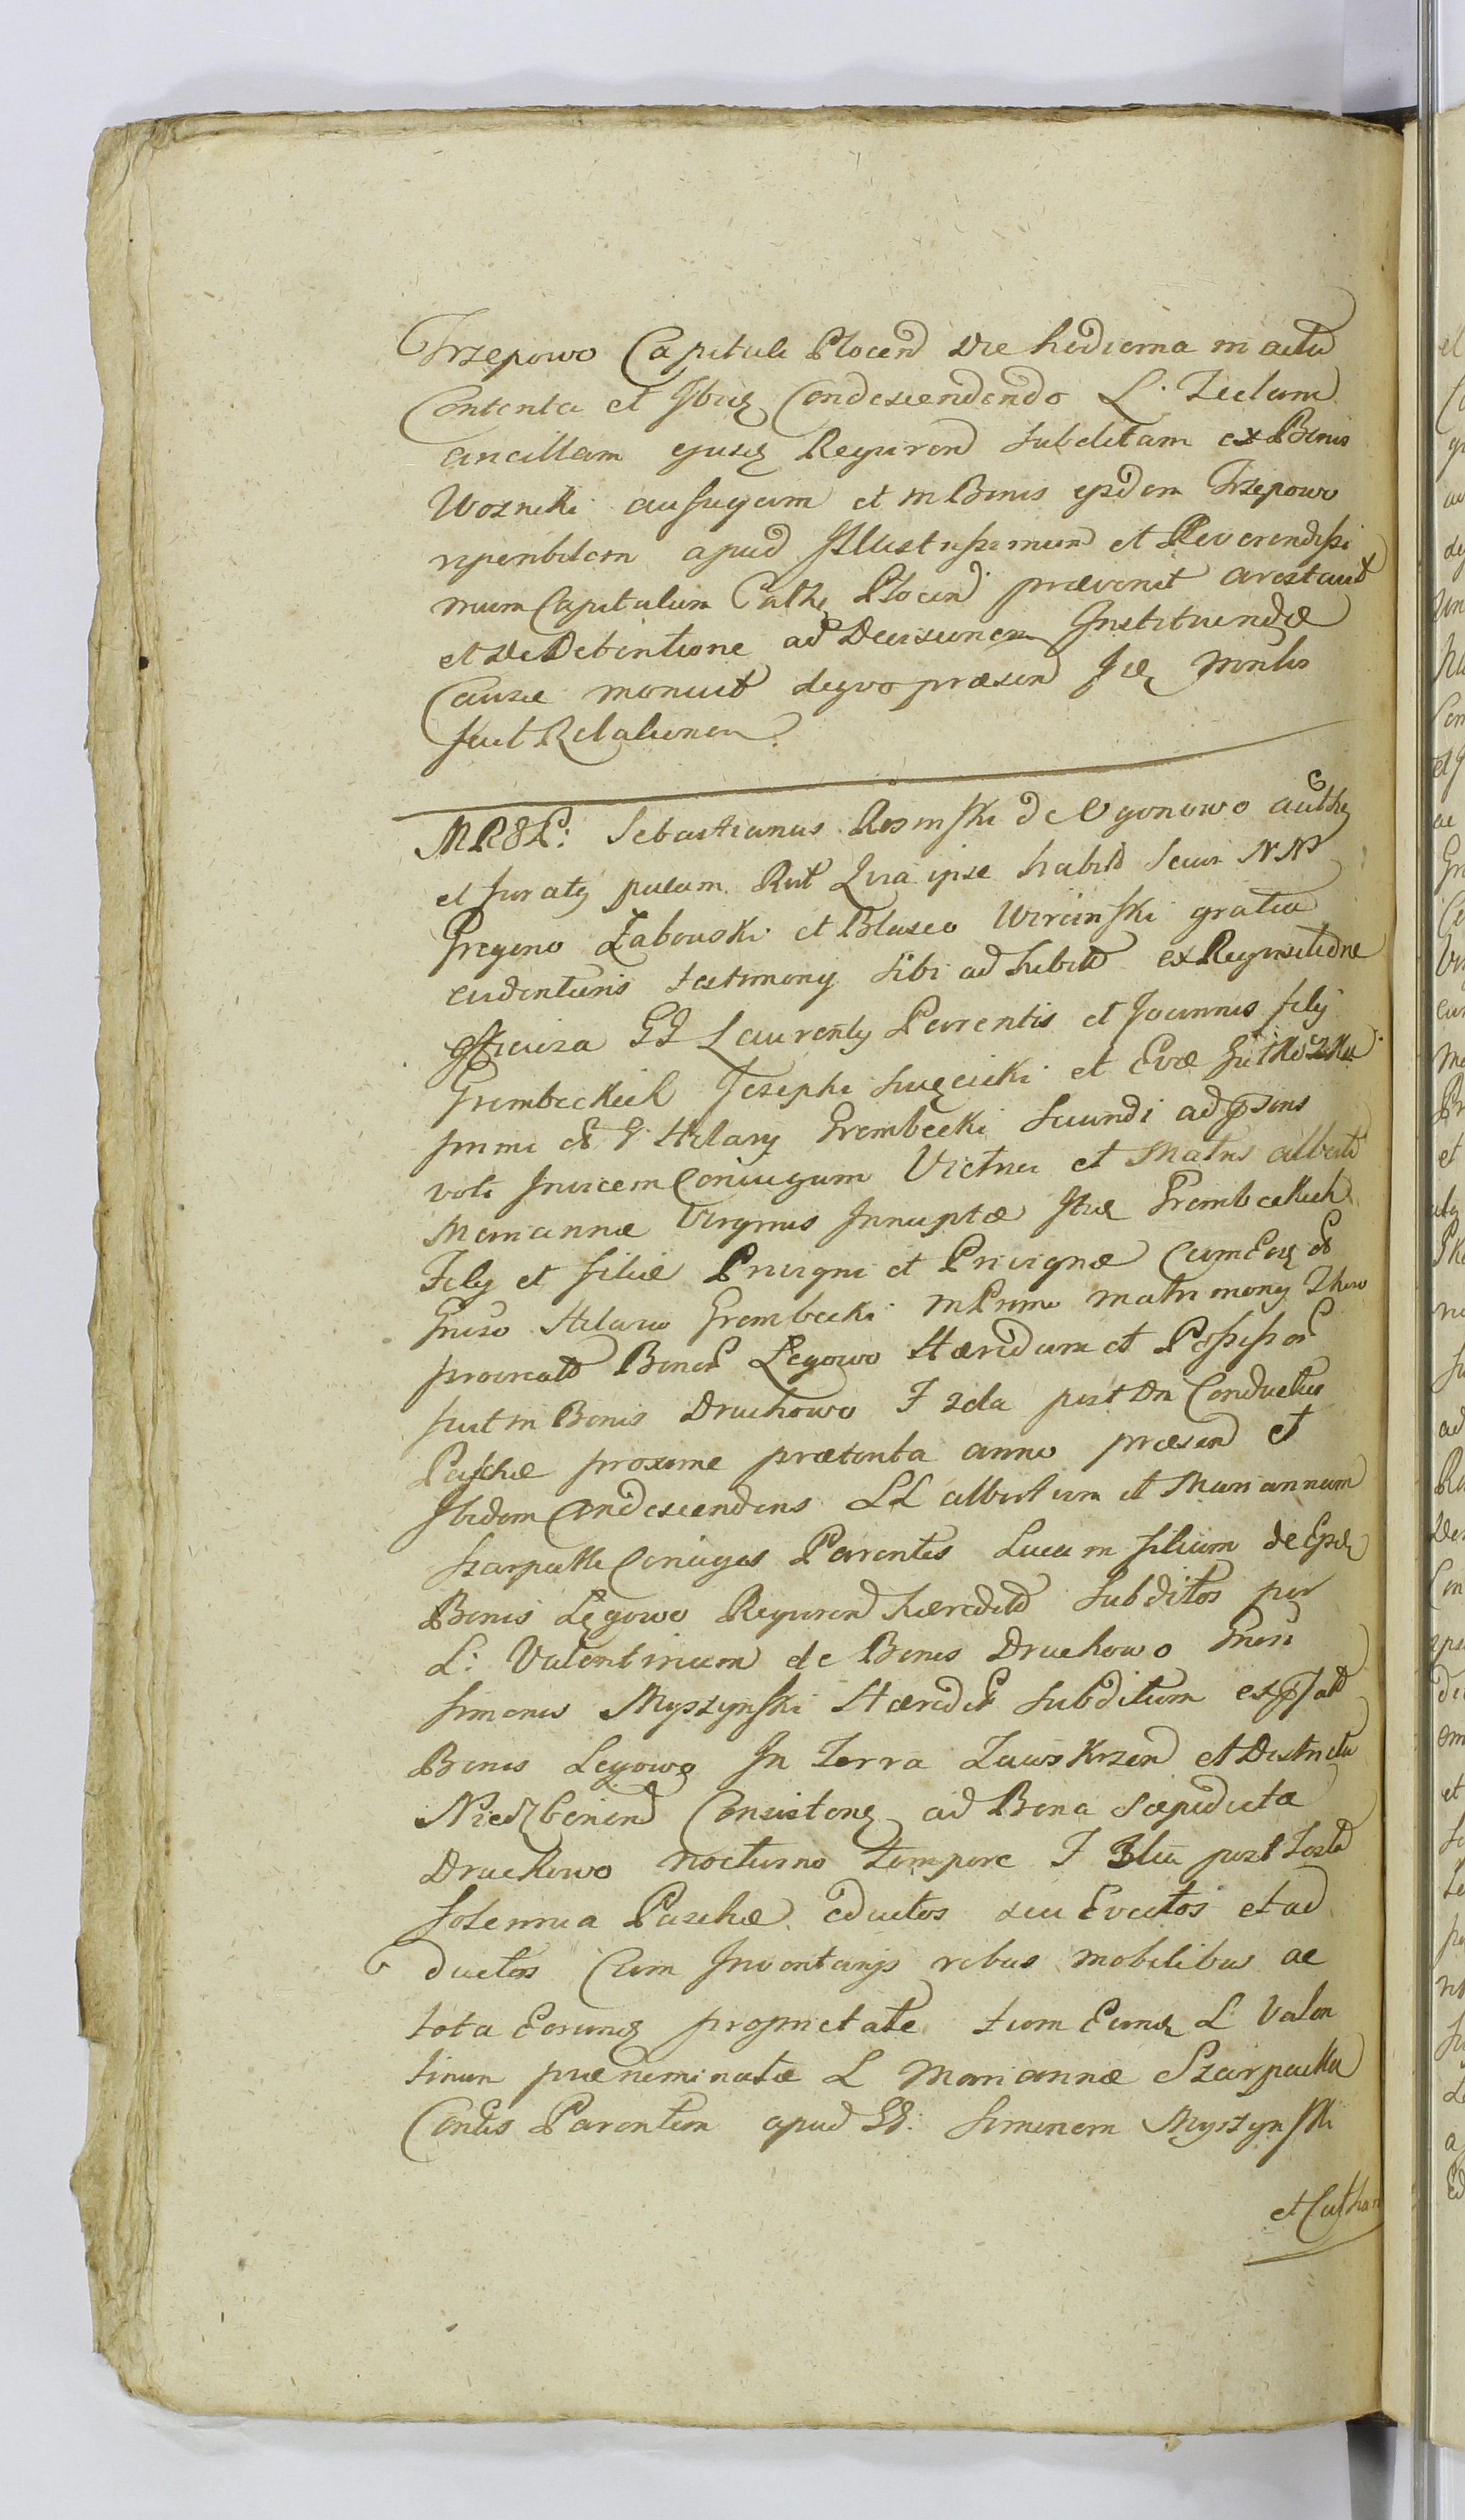 Trzepowo Capituli Plocen Die hodierna in actu
Contenta et Ibiq Condescendendo L. Teclam
ancillam ejusq Requiren subditam ex Bonis
Wozniki aufugam et in Bonis ejsdem Trzepowo
reperibilem apud Illustrissimum et Reverendissi
mum Capitulum Cathe Plocen prævenit arestavit
et De Detentione ad Decisionem Instituendæ
Causæ monuit de quo præsen
fecit Relationem.
MRGL: Sebastianus Rosinski de Ogonowo auth
et juratg palam Rut Quia ipse habito secum NN
Gregorio Zabowski et Blasio Wircinski gratia
evidentioris testimony sibi adhibito ex Requisitione
GG Laurenty Parentis et Joannis fily
Grembeckich Josephi et Evæ
primi & G Hilary Grembecki secundi ad psens
voti Invicem Coniugum Victrici et Matris alberti
Mariannæ Virginis Innuptæ Grembeckich
Fily et filiæ Privigni et Privignæ Cum
Gnrso Hilario Grembecki in Primo matrimony Thoro
procreato Bonor Legowo Hæredum et Possessor
fuit in Bonis Druchowo F 2da post Dm Conductus
Paschæ proxime præterita anno præsen et
Ibidem Condescendens LL albertum et Mariannam
Szarpatki Coniuges Parentes Lucam filium de Epsd
Bonis Legowo Requiren hæredito subditos per
L: Valentinum de Bonis Druchowo Gnrsi
simonis Myszynski Hæredis subditum ex
Bonis Legowo In Terra Zawskrzen et Districtu
Niedzborien Consistens ad Bona sæpedicta
Druchowo nocturno tempore F 3tia post Festa
solennia Paschæ eductos seu Evectos et ad
ductos Cum Inventarijs rebus mobilibus ac
tota Eorumq proprietate tum Eumq L Valen
tinum prænominatæ L Mariannæ Szarpatka
Contis Parentem apud G: simonem Myszynski
et Cathar